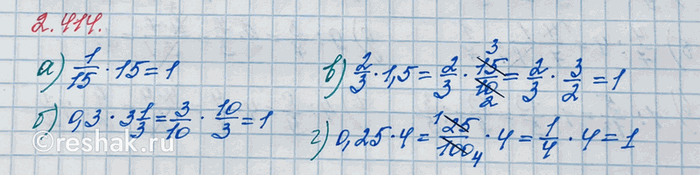 2.414.
а) 1/15 · 15 = 1
б) 0,3 · 3 1/3 = 3/10 · 10/3 = 1
в) 2/3 · 1,5 = 2/3 · 15/10 = 2/3 · 3/2 = 1
г) 0,25 · 4 = 25/100 · 4 = 1/4 · 4 = 1
©reshak.ru